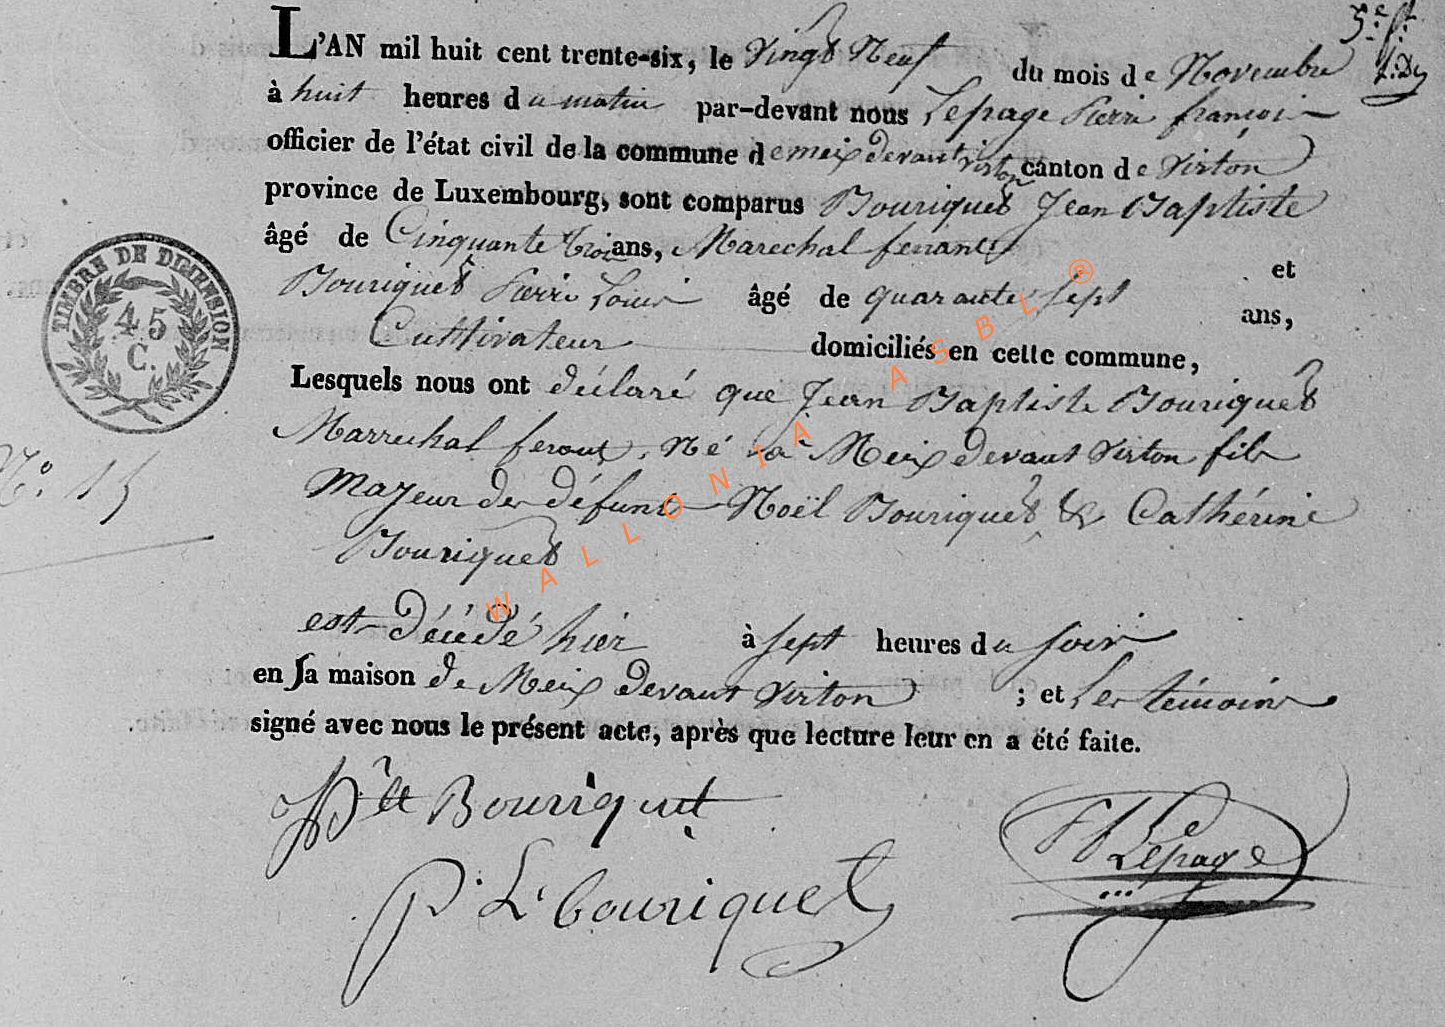 L'AN mil huit cent trente-six, le vingt Neuf du mois de Novembre
à huit heures du matin par-devant nous Lepage Pierre françois
officier de l'état civil de la commune de meix devant virton canton de Virton
province de Luxembourg, sont comparus Bouriquet Jean Baptiste
âgé de Cinquante trois ans, Marechal ferrant et
Bouriquet Pierre Louis âgé de quarante sept ans,
Cultivateur domiciliés en cette commune,
Lesquels nous ont déclaré que Jean Baptiste Bouriquet
Marrechal ferant, Né à Meix devant Virton fils
Majeur de défunt Noël Bouriquet & Cathérine
Bouriquet
est Décédé hier à sept heures du soir
en sa maison de Meix devant Virton ; et les témoins
signé avec nous le présent acte, après que lecture leur en a été faite.
TIMBRE DE DIMENSION
45
C.
N°. 15
Bouriquet
P. L. bouriquet
Lepage
WALLONIA ASBL ®